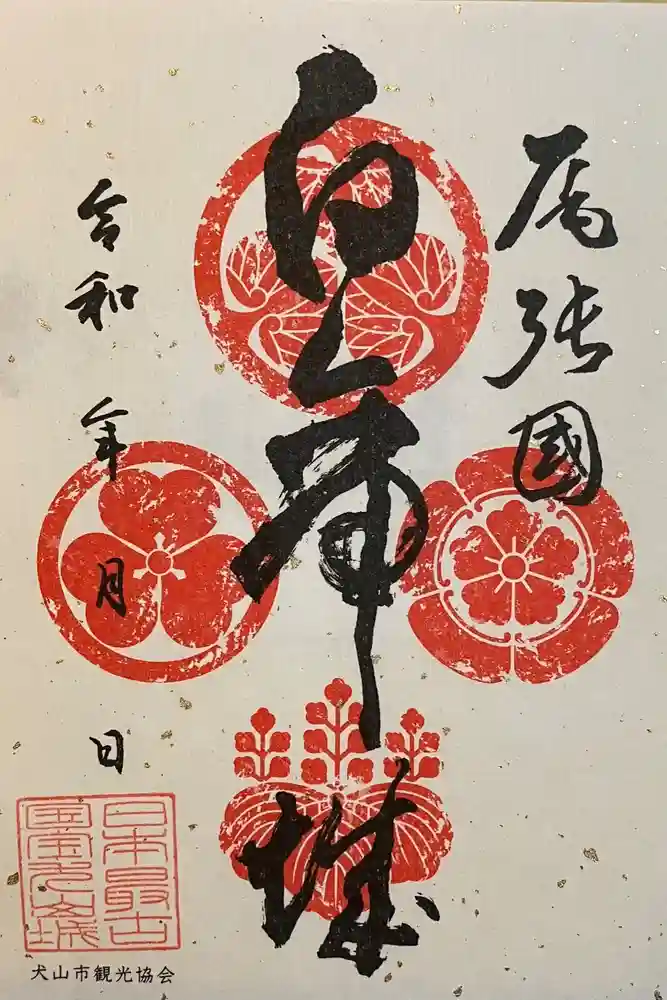 尾張國
白帝城
令和 年 月 日
日本最古
国宝犬山城
犬山市観光協会